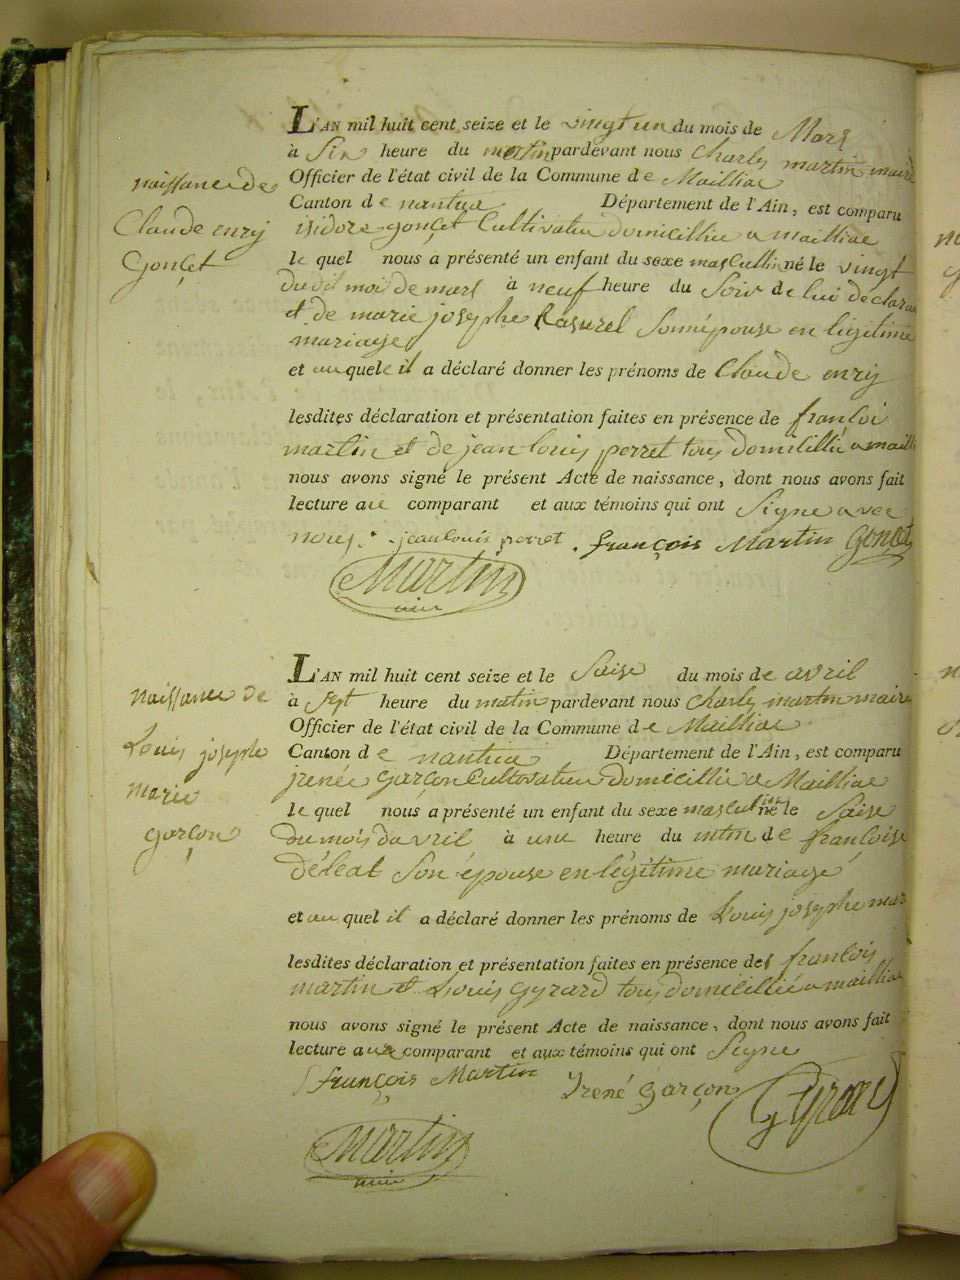 naissance de
Claude enry
Gonçet
L'AN mil huit cent seize et le vingt un du mois de Mars
à Six heure du matin pardevant nous Charly martin maire
Officier de l'état civil de la Commune de Mailliac
Canton de nantua Département de l'Ain, est comparu
isidore gonçet Cultivateu domicilliu a mailliac
le quel nous a présenté un enfant du sexe mascullin né le vingt
du dit moi de mars à neuf heure du Soir de lui declaran
et de marie josephe Rasurel Sonnépouse en légitime
mariage
et auquele il a déclaré donner les prénoms de Claude enry
lesdites déclaration et présentation faites en présence de françoi
martin et de jean louis perret tous domicillié a mailli
nous avons signé le présent Acte de naissance, dont nous avons fait
lecture au comparant et aux témoins qui ont Signe avec
nous. jean louis perret. françois Martin Gonçet
Martin
maire
naissance de
Louis josephe
marie
garçon
L'AN mil huit cent seize et le Saise du mois de avril
à Sept heure du matin pardevant nous Charly martin maire
Officier de l'état civil de la Commune de Mailliac
Canton de nantua Département de l'Ain, est comparu
jrenée garçon Cultovateu domicillié a Mailliac
le quel nous a présenté un enfant du sexe masculin né le Saise
du mois davril à une heure du mtin de francoise
déléat Son épouse en légitime mariage
et au quel il a déclaré donner les prénoms de Louis josephe mar
lesdites déclaration et présentation faites en présence des francois
martin et Louis gyrard tous domicillié a mailliac
nous avons signé le présent Acte de naissance, dont nous avons fait
lecture aux comparant et aux témoins qui ont Signe
françois Martin Irené Garçon Gyrard
Martin
maire